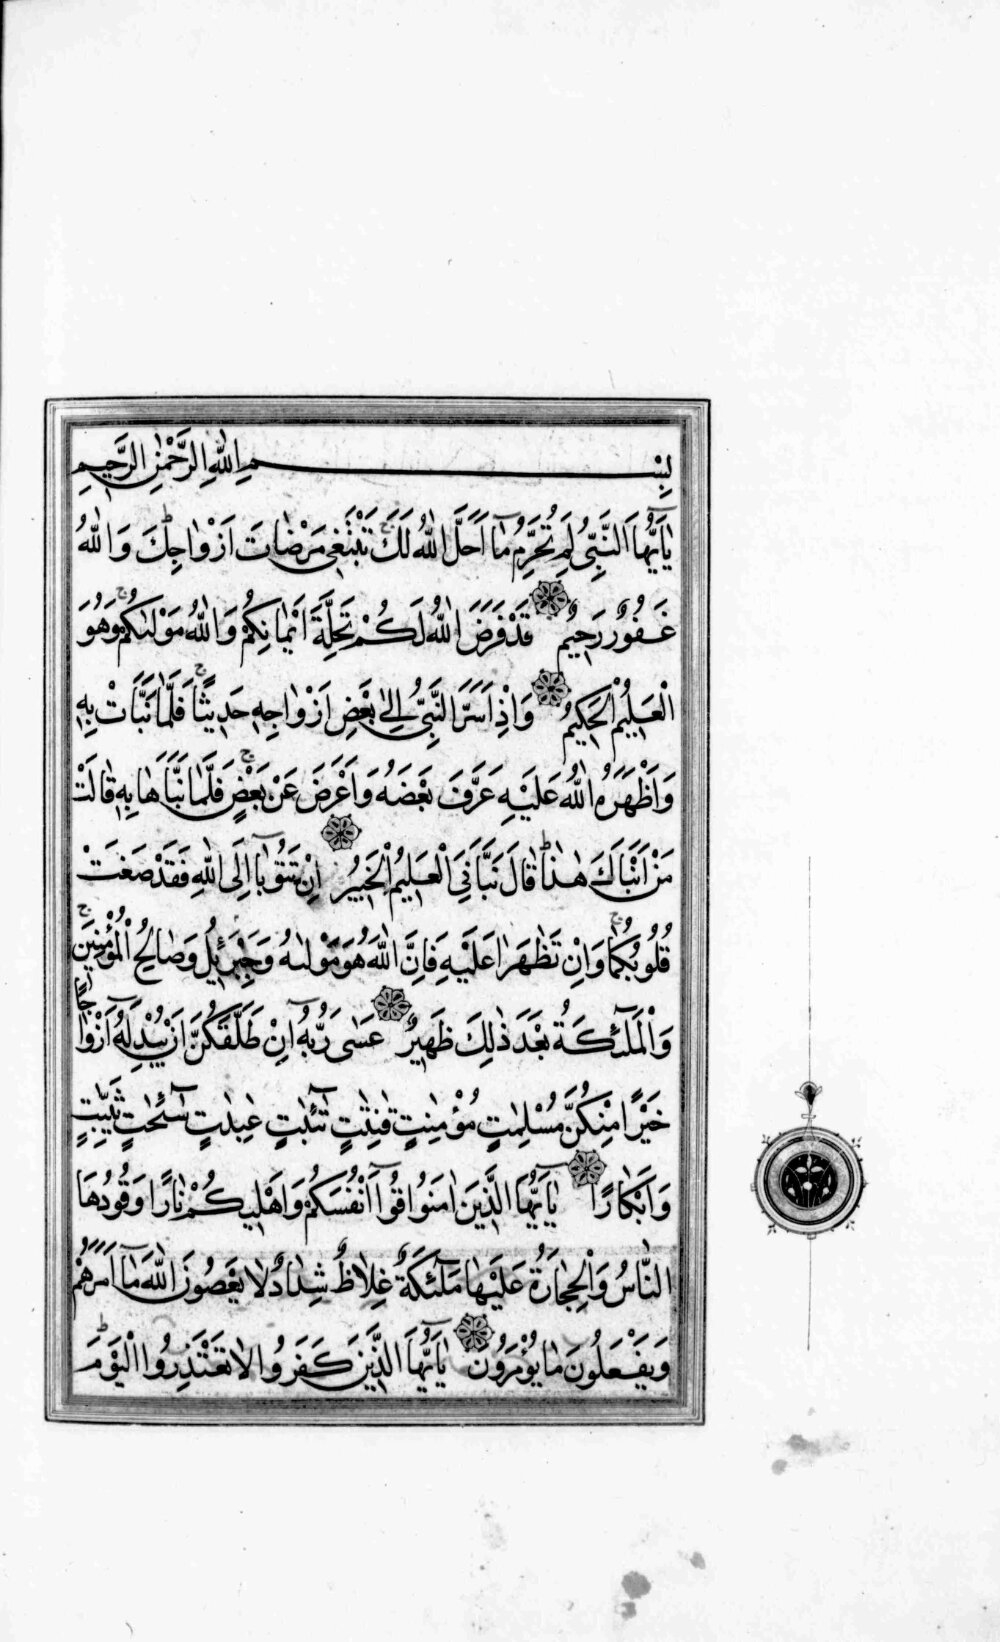 بِسْمِ اللّٰهِ الرَّحْمٰنِ الرَّحِيمِ
يَٓا اَيُّهَا النَّبِىُّ لِمَ تُحَرِّمُ مَٓا اَحَلَّ اللّٰهُ لَكَۚ تَبْتَغِى مَرْضَاتَ اَزْوَاجِكَۜ وَاللّٰهُ
غَفُورٌ رَحِيمٌ قَدْ فَرَضَ اللّٰهُ لَكُمْ تَحِلَّةَ اَيْمَانِكُمْۚ وَاللّٰهُ مَوْلٰيكُمْۚ وَهُوَ
الْعَلِيمُ الْحَكِيمُ وَاِذْ اَسَرَّ النَّبِىُّ اِلٰى بَعْضِ اَزْوَاجِهِ حَدِيثًاۚ فَلَمَّا نَبَّاَتْ بِهِ
وَاَظْهَرَهُ اللّٰهُ عَلَيْهِ عَرَّفَ بَعْضَهُ وَاَعْرَضَ عَنْ بَعْضٍۚ فَلَمَّا نَبَّاَهَا بِهِ قَالَتْ
مَنْ اَنْبَاَكَ هٰذَاۜ قَالَ نَبَّاَنِىَ الْعَلِيمُ الْخَبِيرُ اِنْ تَتُوبَٓا اِلَى اللّٰهِ فَقَدْ صَغَتْ
قُلُوبُكُمَاۚ وَاِنْ تَظَاهَرَا عَلَيْهِ فَاِنَّ اللّٰهَ هُوَ مَوْلٰيهُ وَجِبْرِيلُ وَصَالِحُ الْمُؤْمِنِينَۚ
وَالْمَلٰٓئِكَةُ بَعْدَ ذٰلِكَ ظَهِيرٌ عَسٰى رَبُّهُٓ اِنْ طَلَّقَكُنَّ اَنْ يُبْدِلَهُٓ اَزْوَاجًا
خَيْرًا مِنْكُنَّ مُسْلِمَاتٍ مُؤْمِنَاتٍ قَانِتَاتٍ تَٓائِبَاتٍ عَابِدَاتٍ سَٓائِحَاتٍ ثَيِّبَاتٍ
وَاَبْكَارًا يَٓا اَيُّهَا الَّذِينَ اٰمَنُوا قُٓوا اَنْفُسَكُمْ وَاَهْلِيكُمْ نَارًا وَقُودُهَا
النَّاسُ وَالْحِجَارَةُ عَلَيْهَا مَلٰٓئِكَةٌ غِلَاظٌ شِدَادٌ لَا يَعْصُونَ اللّٰهَ مَٓا اَمَرَهُمْ
وَيَفْعَلُونَ مَا يُؤْمَرُونَ يَٓا اَيُّهَا الَّذِينَ كَفَرُوا لَا تَعْتَذِرُوا الْيَوْمَۜ